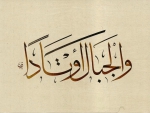 وَالْجِبَالَ أَوْتَادًا